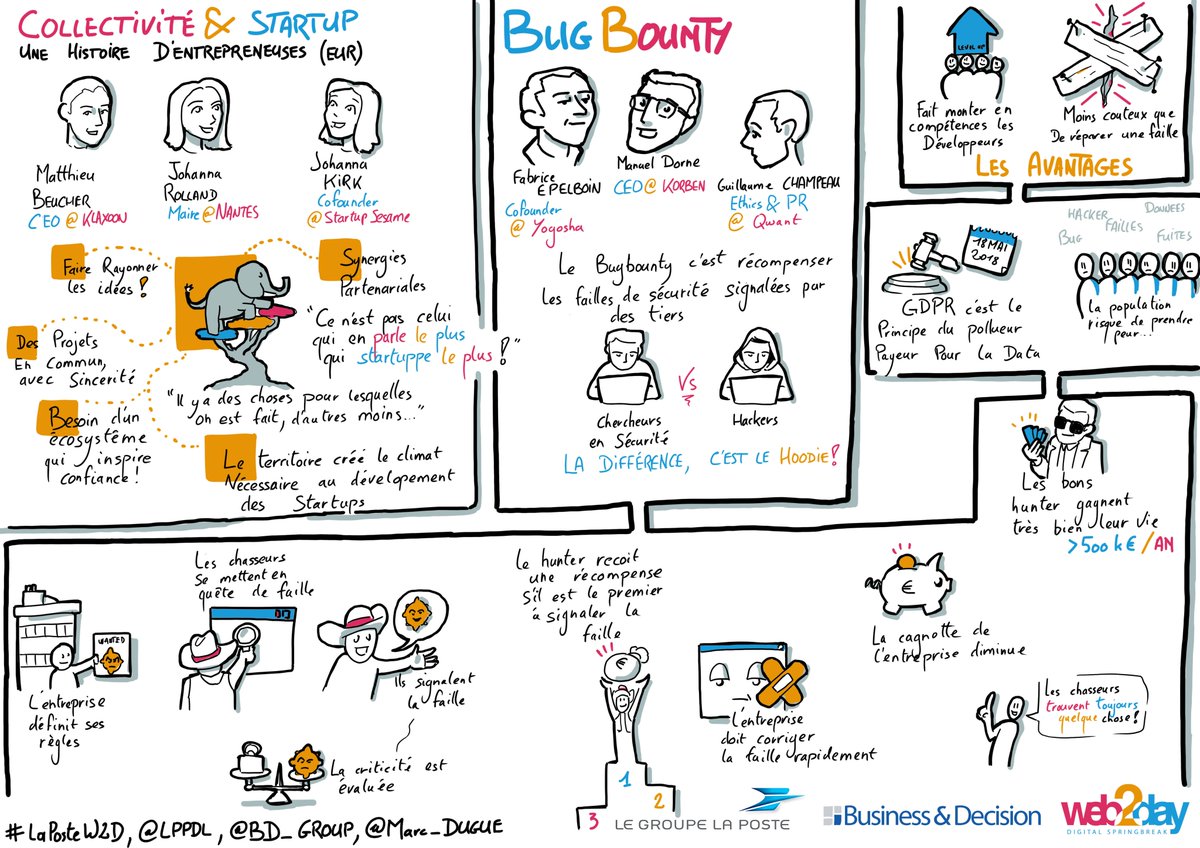 COLLECTIVITÉ & STARTUP
UNE HISTOIRE D'ENTREPRENEUSES (EUR)
Matthieu
BEUCHER
CEO @ KLAXOON
Johanna
ROLLAND
Maire @ NANTES
Johanna
KIRK
Cofounder
@ Startup Sesame
Faire Rayonner
les idées !
Synergies
Partenariales
Des Projets
En Commun,
avec Sincerité
"Ce n'est pas celui
qui en parle le plus
qui startuppe le plus !"
"Il y a des choses pour lesquelles
on est fait, d'autres moins..."
Besoin d'un
écosystème
qui inspire
confiance !
Le territoire créé le climat
Nécessaire au dévelopement
des Startups
BUG BOUNTY
Fabrice
EPELBOIN
Cofounder
@ Yogosha
Manuel Dorne
CEO @ KORBEN
Guillaume CHAMPEAU
Ethics & PR
@ Qwant
Le Bugbounty c'est récompenser
les failles de sécurité signalées par
des tiers
Chercheurs
en Sécurité
VS
Hackers
LA DIFFÉRENCE, C'EST LE HOODIE !
LEVEL UP
Fait monter en
compétences les
Développeurs
Moins couteux que
De réparer une faille
LES AVANTAGES
18 MAI
2018
GDPR c'est le
Principe du pollueur
Payeur Pour la Data
HACKER
DONNEES
BUG
FAILLES
FUITES
La population
risque de prendre
peur...
Les bons
hunter gagnent
très bien leur vie
>500 k€/AN
WANTED
L'entreprise
définit ses
règles
Les chasseurs
Se mettent en
quête de faille
Ils signalent
la faille
La criticité est
évaluée
Le hunter recoit
une récompense
S'il est le premier
à signaler la
faille
€
1
2
3
L'entreprise
doit corriger
la faille rapidement
€
La cagnotte de
l'entreprise diminue
Les chasseurs
trouvent toujours
quelque chose !
#LaPosteW2D, @LPPDL, @BD_GROUP, @Marc_DUGUE
LE GROUPE LA POSTE
Business & Decision
web2day
DIGITAL SPRINGBREAK